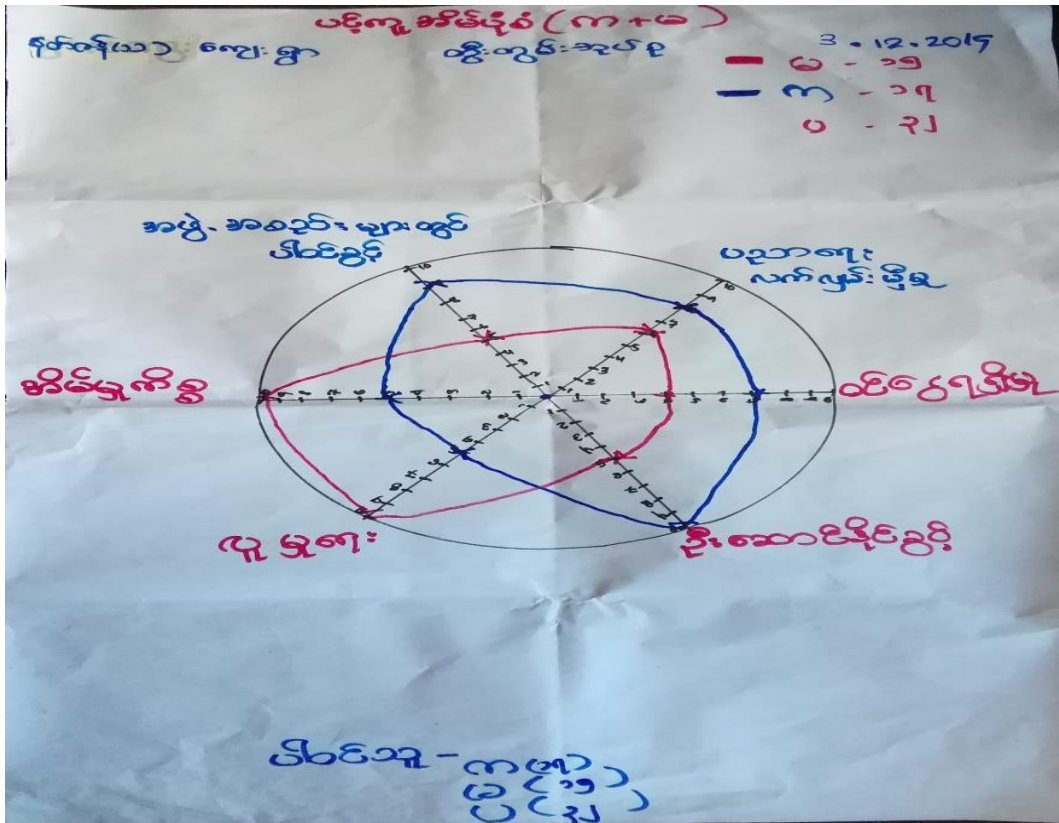 ပင့်ကူအိမ်ပုံစံ (က + မ)
ကျေးရွာ
ထီးတွင်းအုပ်စု
3.12.2019
မ - ၁၅
က - ၁၇
ပ - ၃၂
အဖွဲ့အစည်းများတွင်
ပါဝင်ခွင့်
ပညာရေး
လက်လှမ်းမှီမှု
အိမ်မှုကိစ္စ
ဝင်ငွေရရှိမှု
လူမှုရေး
ဦးဆောင်နိုင်ခွင့်
ပါဝင်သူ - က (၁၇)
မ (၁၅)
ပ (၃၂)